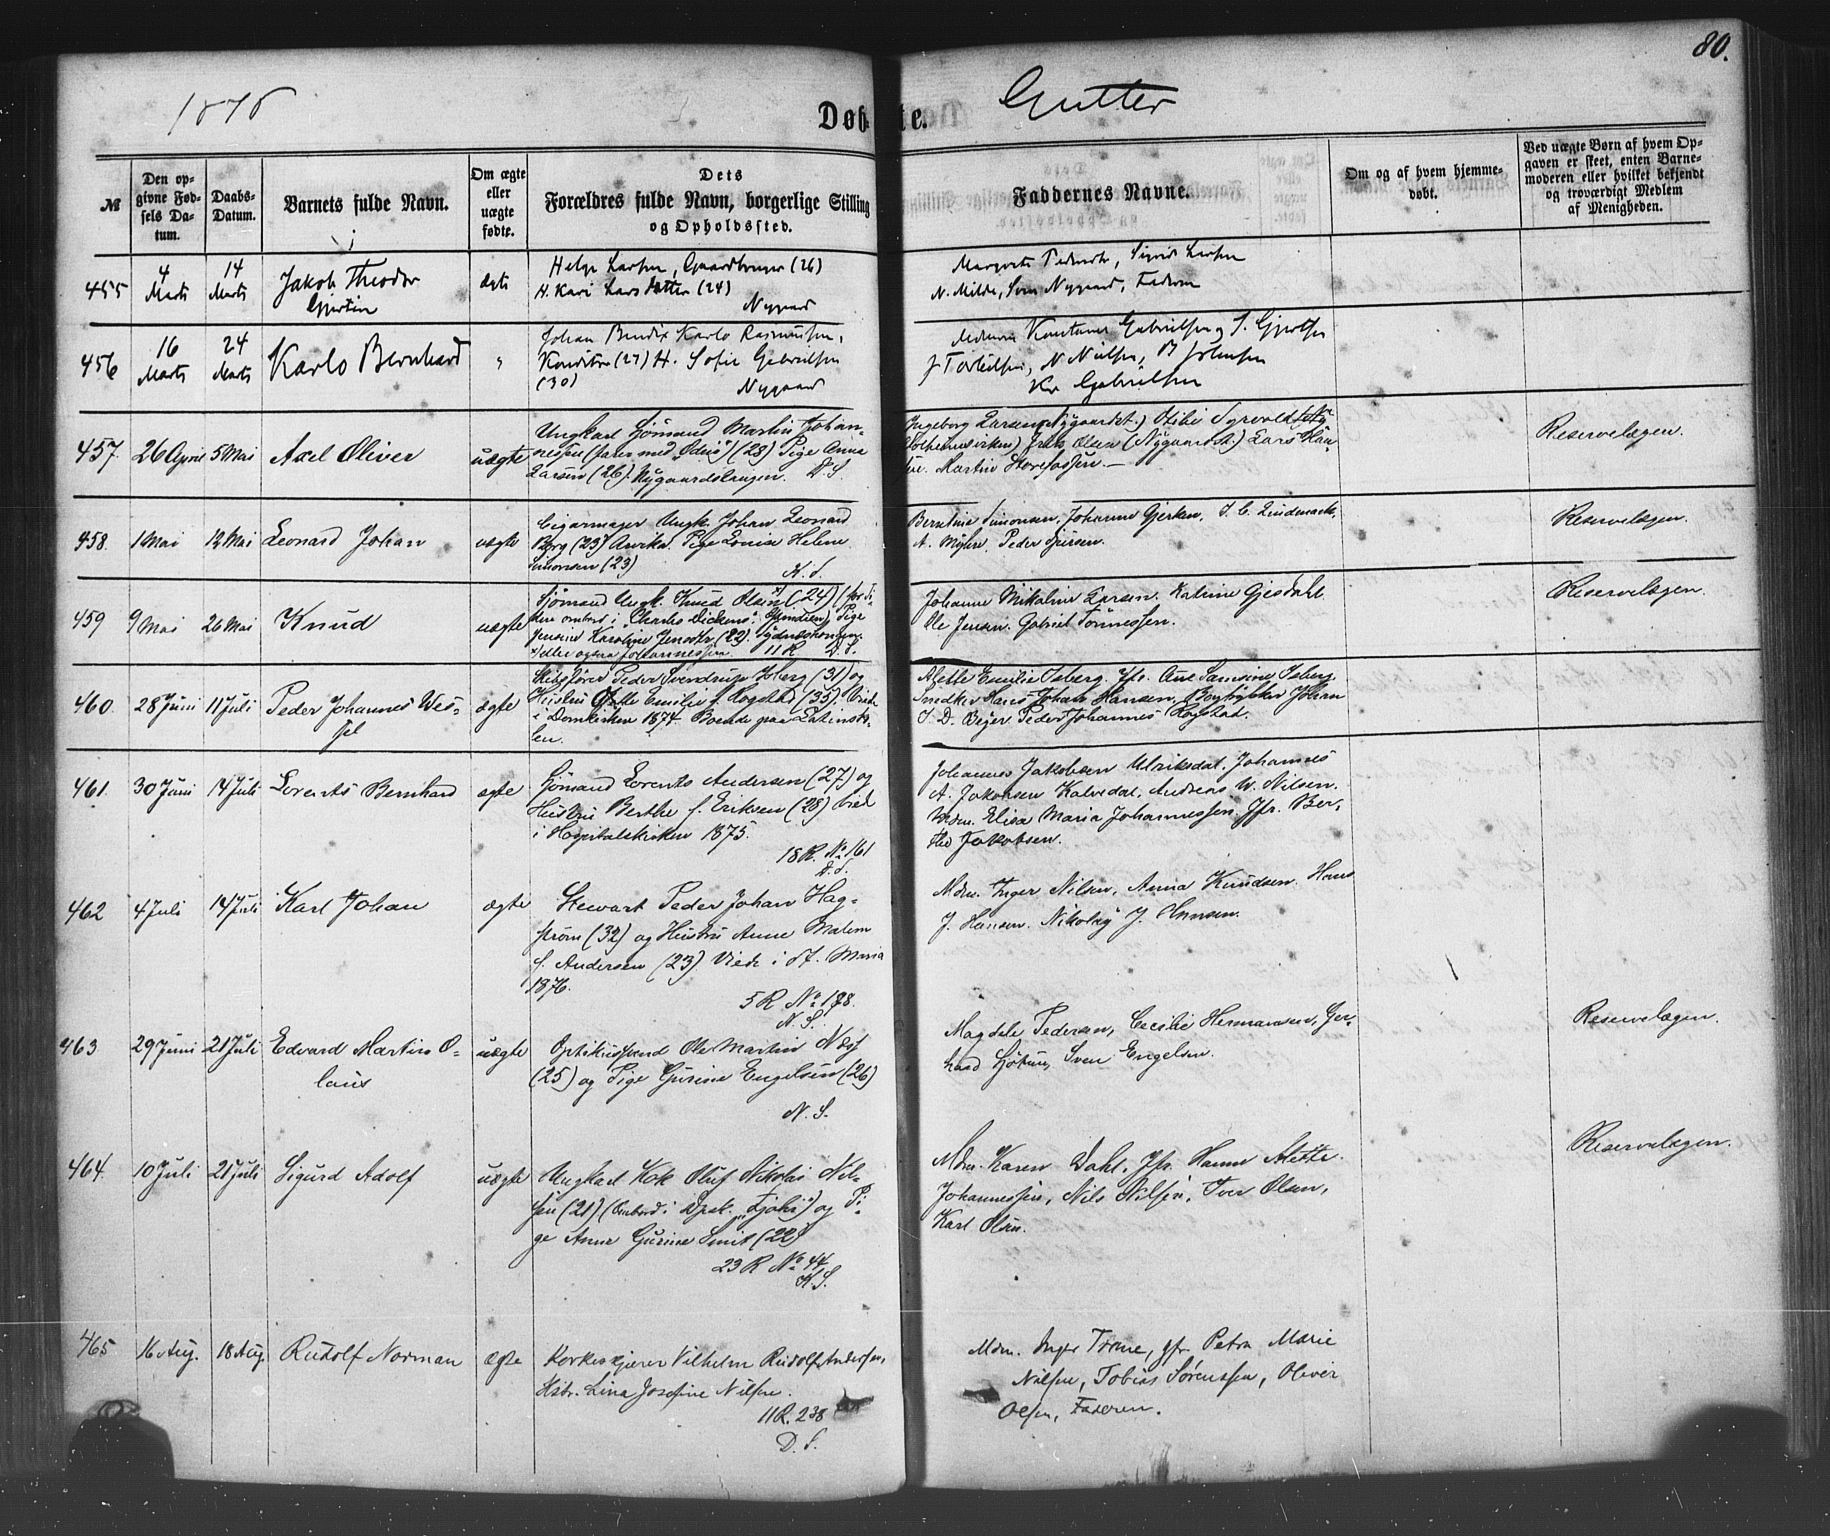 80.
1878
Gutter
Døbte.
№
Den op-
givne Fød-
sels Da-
tum.
Daabs-
Datum.
Barnets fulde Navn.
Om ægte
eller
uægte
fødte.
Dets
Forældres fulde Navn, borgerlige Stilling
og Opholdssted.
Faddernes Navne.
Om og af hvem hjemme-
døbt.
Ved uægte Børn af hvem Op-
gaven er skeet, enten Barne-
moderen eller hvilket bekjendt
og troværdigt Medlem
af Menigheden.
455
4 Marts
14 Marts
Jakob Theodor
Gjertin
ægte
Helge Larsen, Gaardbruger (26)
H. Kari Larsdatter (24)
Nygaard
Margrete Pedersdtr, Sigrid Larsen
N. Milde, Sven Nygaard, Faderen
456
16 Marts
24 Marts
Karlo Bernhard
"
Johan Bendix Karlo Rasmussen,
Konditor (27) H. Sofie Gabrielsen
(30)
Nygaard
Madamerne Gabrielsen og S. Gjertsen
J Torkildsen, N Nilsen, B Johnsen
Kr Gabrielsen
457.
26 April
5 Mai
Axel Oliver
uægte
Ungkarl Sjømand Martin Johan-
nessen (farer med "Odin") (23) Pige Anna
Larsen (26). Nygaardslangen. D. S.
Ingeborg Larsen (Nygaardst.)
Olsen (Nygaardst.) Lars
Martin Storefossen. —
Reservelægen.
458.
1 Mai
12 Mai
Leonard Johan
uægte
Cigarmager Ungk. Johan Leonard
Berg (23) Arvika. Pige Lovise Helene
Simonsen (23)
K. S.
Berntine Simonsen, Johanne Gjerken, J. C. Lindemark,
A. Myhre, Peder Iversen.
Reservelægen.
459
9 Mai
26 Mai
Knud
uægte
Sjømand Ungk. Knud Olsen x) (24) (for Ti-
den ombord i "Charles Dickens". Ostindien) Pige
Jensine Karoline Jensdtr (22). Sydnæskongen.
x) eller ogsaa Johannessen. 11 R D. S.
Johanne Mikaline Larsen. Katrine Gjesdahl.
Ole Jensen. Gabriel Tønnessen.
Reservelægen.
460.
28 Juni
11 Juli
Peder Johannes Wes-
sel
ægte
Skibsfører Peder Svendrup Isberg (31) og
Hustru Emilie f. Rogstad (35). Viede
i Domkirken 1874. Boende paa Latinsko-
len.
Alette Emilie Isberg. Jfr. Ane Samsine Isberg.
Snedker Hans Johan Hansen, Johan
S. D. Beyer Peder Johannes Rogstad.
461.
30 Juni
14 Juli
Lorents Bernhard
ægte
Sjømand Lorents Andersen (27) og
Hustru Berthe f. Eriksen (28) Viet
i Hospitalskirken 1875.
18 R. No 161
D. S.
Johannes Jakobsen Ulriksdal. Johannes
A. Jakobsen Kalvedal. Andreas W. Nilsen.
Mdm. Elisa Maria Johannessen. Jfr. Ber-
the Jakobsen.
462
4 Juli
14 Juli
Karl Johan
ægte
Stewart Peder Johan Hag-
strøm (32) og Hustru Anne Malene
f. Andersen (23) Viede i St. Maria
1876.
5 R No 188.
N. S.
Mdm. Inger Nilsen, Anna Knudsen. Hans
J. Hansen. Nikolay J. Hansen.
463
29 Juni
21 Juli
Edvard Martin O-
laus
uægte
Ole Martin Næss
(25) og Pige Gurine Engelsen (26)
N. S.
Magdele Pedersen, Cecilie Hermansen, Ger-
hard Sven Engelsen.
Reservelægen.
464.
10 Juli
21 Juli
Sigurd Adolf
uægte
Ungkarl Kok Oluf Nikolai Nil-
sen (21) (ombord i Dpsk. "Fjohi") og Pi-
ge Anne Gurine Smit (22)
23 R No 44
K. S.
Mdm. Karen Dahl. Jfr. Hanne Alette
Johannessen, Nils Nilsen, Iver Olsen,
Karl Olsen.
Reservelægen.
465
16 Aug.
18 Aug.
Rudolf Norman
ægte
Korkeskjærer Vilhelm Rudolf Andersen,
Hstr. Lina Josefine Nilsen.
11 R. 238
D. S.
Mdm. Inger Trane, jfr. Petra Marie
Nilsen, Tobias Sørenssen, Oliver
Olsen, Faderen.